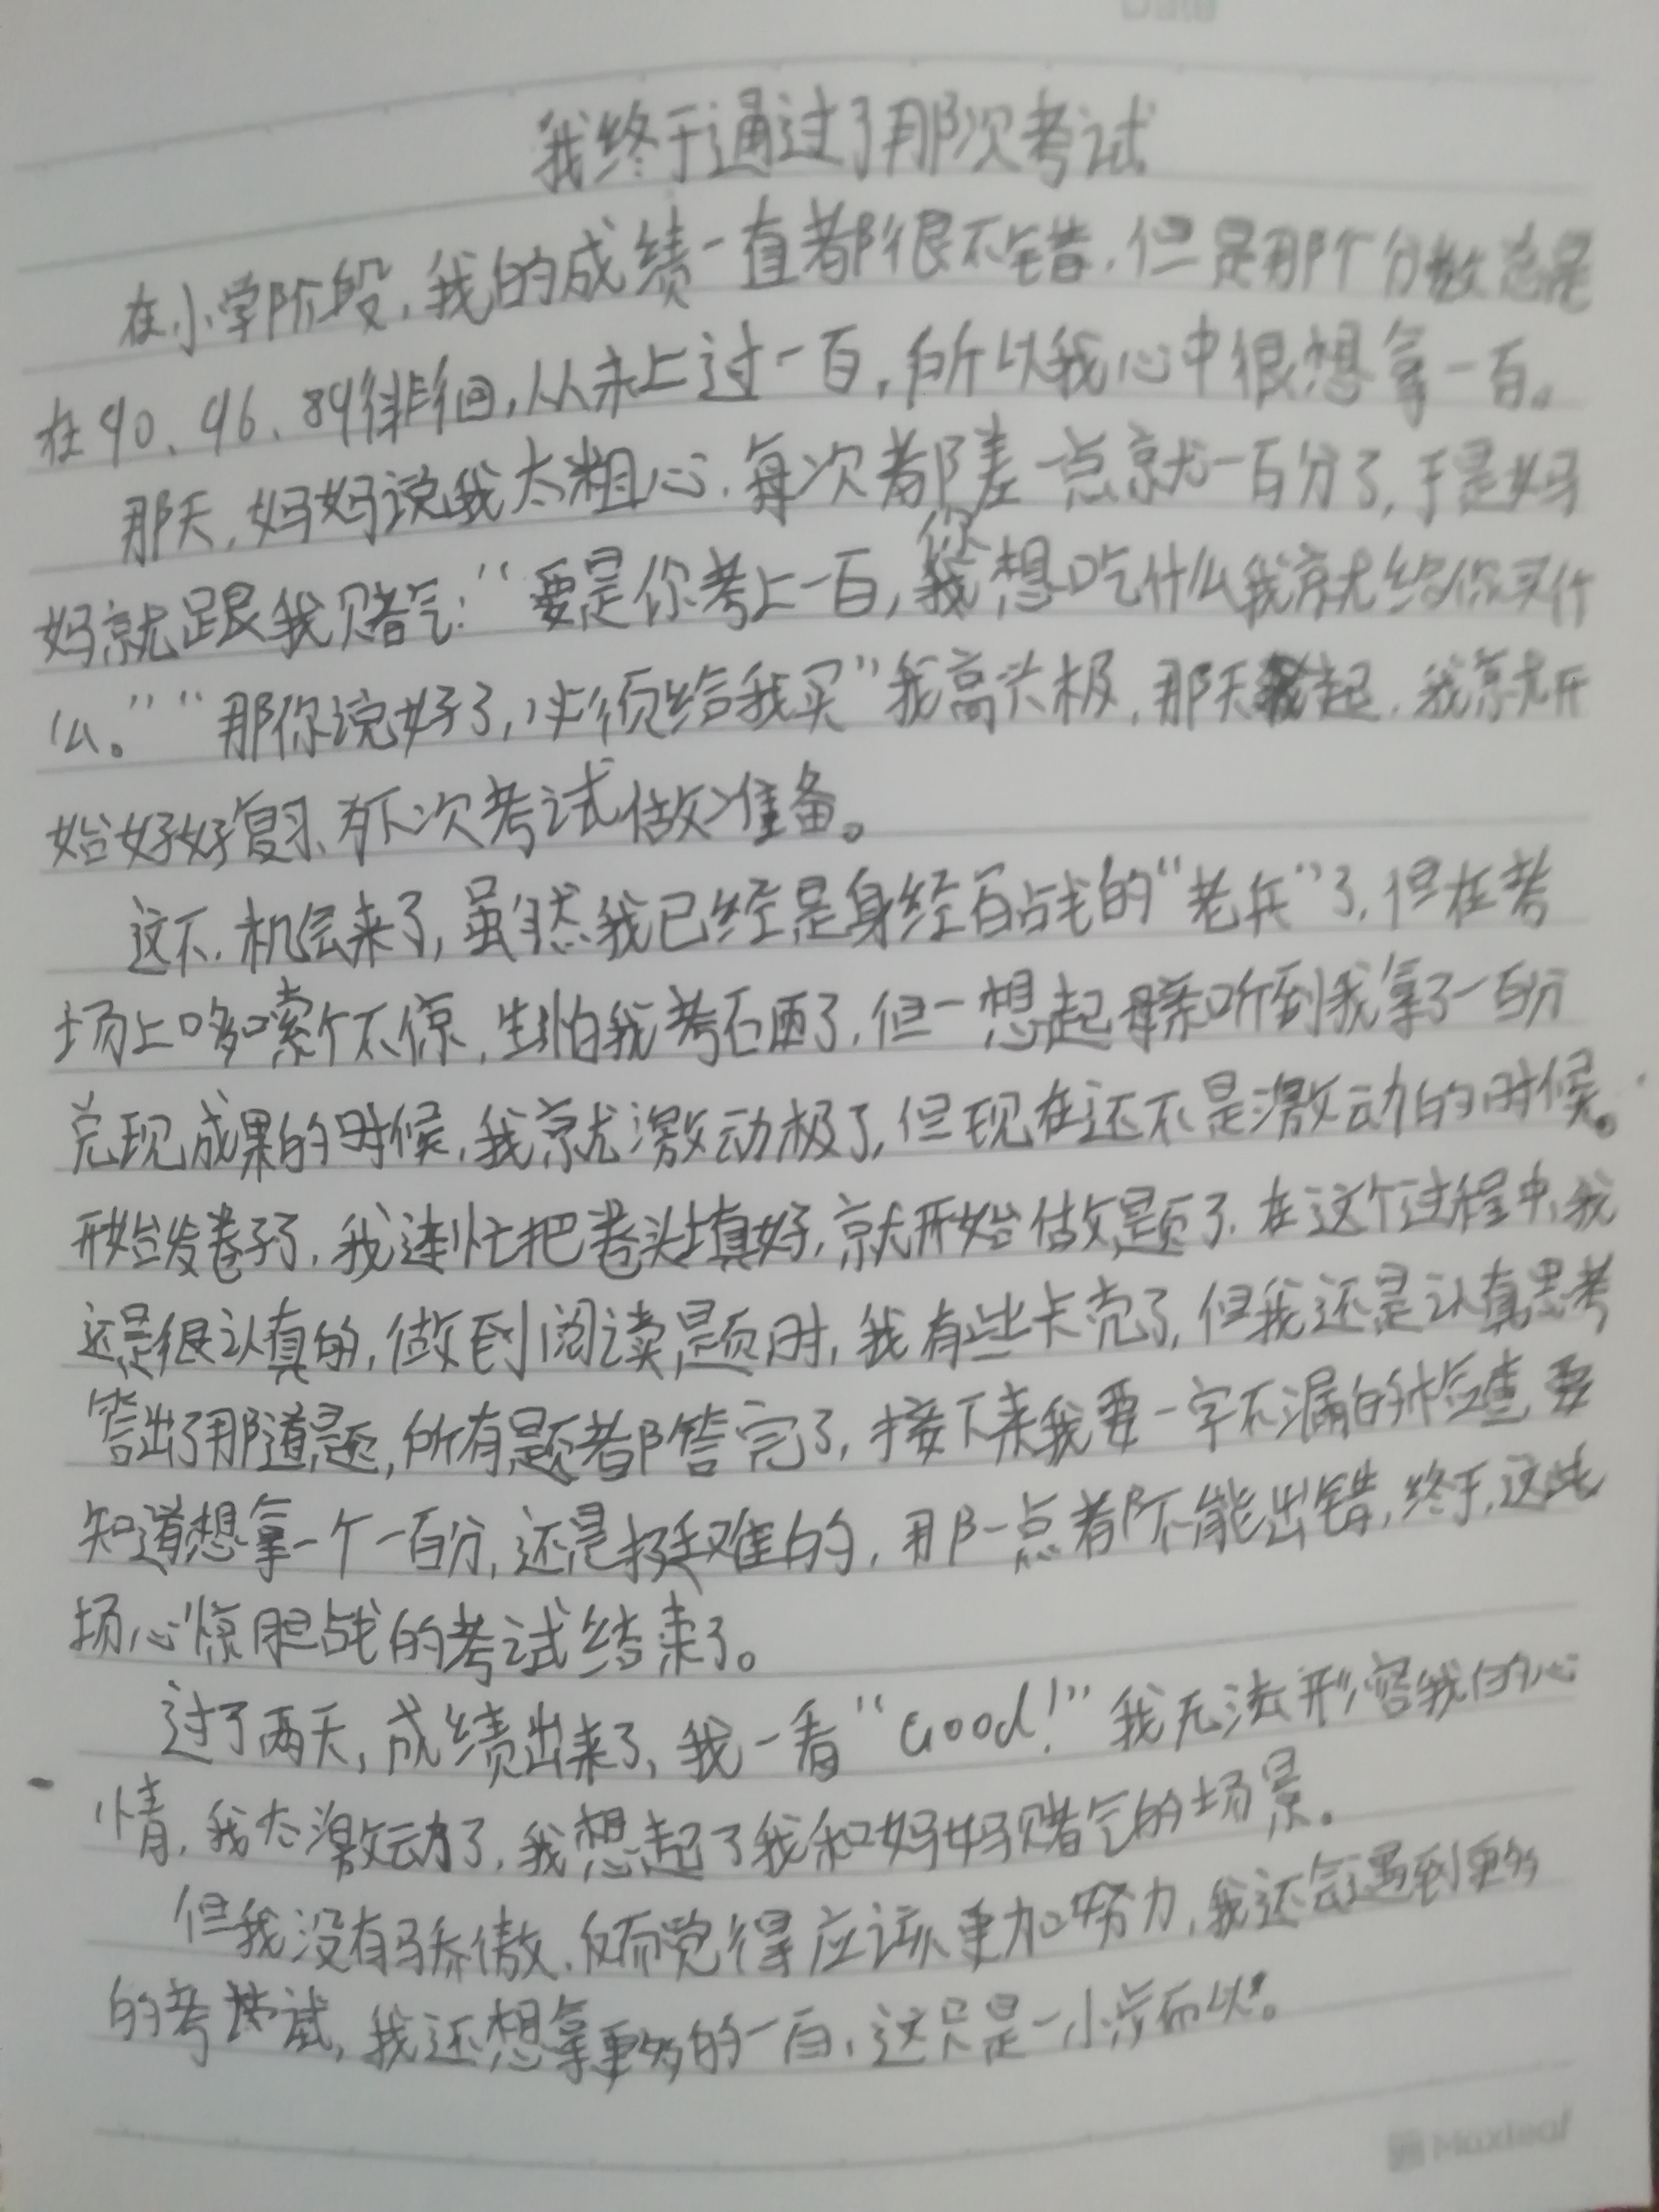 Date
我终于通过了那次考试
在小学阶段,我的成绩一直都很不错,但是那个分数总是
在90、96、89徘徊,从未上过一百,所以我心中很想拿一百。
那天,妈妈说我太粗心,每次都差一点就一百分了,于是妈
妈就跟我赌气:“要是你考上一百,你想吃什么我就给你买什
么。”“那你说好了,必须给我买”我高兴极,那天起,我就开
始好好复习、为下次考试做准备。
这不,机会来了,虽然我已经是身经百战的“老兵”了,但在考
场上哆嗦个不停,生怕我考砸了,但一想起母亲听到我拿了一百分
兑现成果的时候,我就激动极了,但现在还不是激动的时候。
开始发卷子了,我连忙把卷头填好,就开始做题了,在这个过程中,我
还是很认真的,做到阅读题时,我有些卡壳了,但我还是认真思考
答出了那道题,所有题都答完了,接下来我要一字不漏的检查,要
知道想拿一个一百分,还是挺难的,那一点都不能出错,终于,这
场心惊胆战的考试结束了。
过了两天,成绩出来了,我一看“Good!”我无法形容我的心
情,我太激动了,我想起了我和妈妈赌气的场景。
但我没有骄傲,反而觉得应该更加努力,我还会遇到更多
的考试,我还想拿更多的一百,这只是一小步而以。
Maxleaf